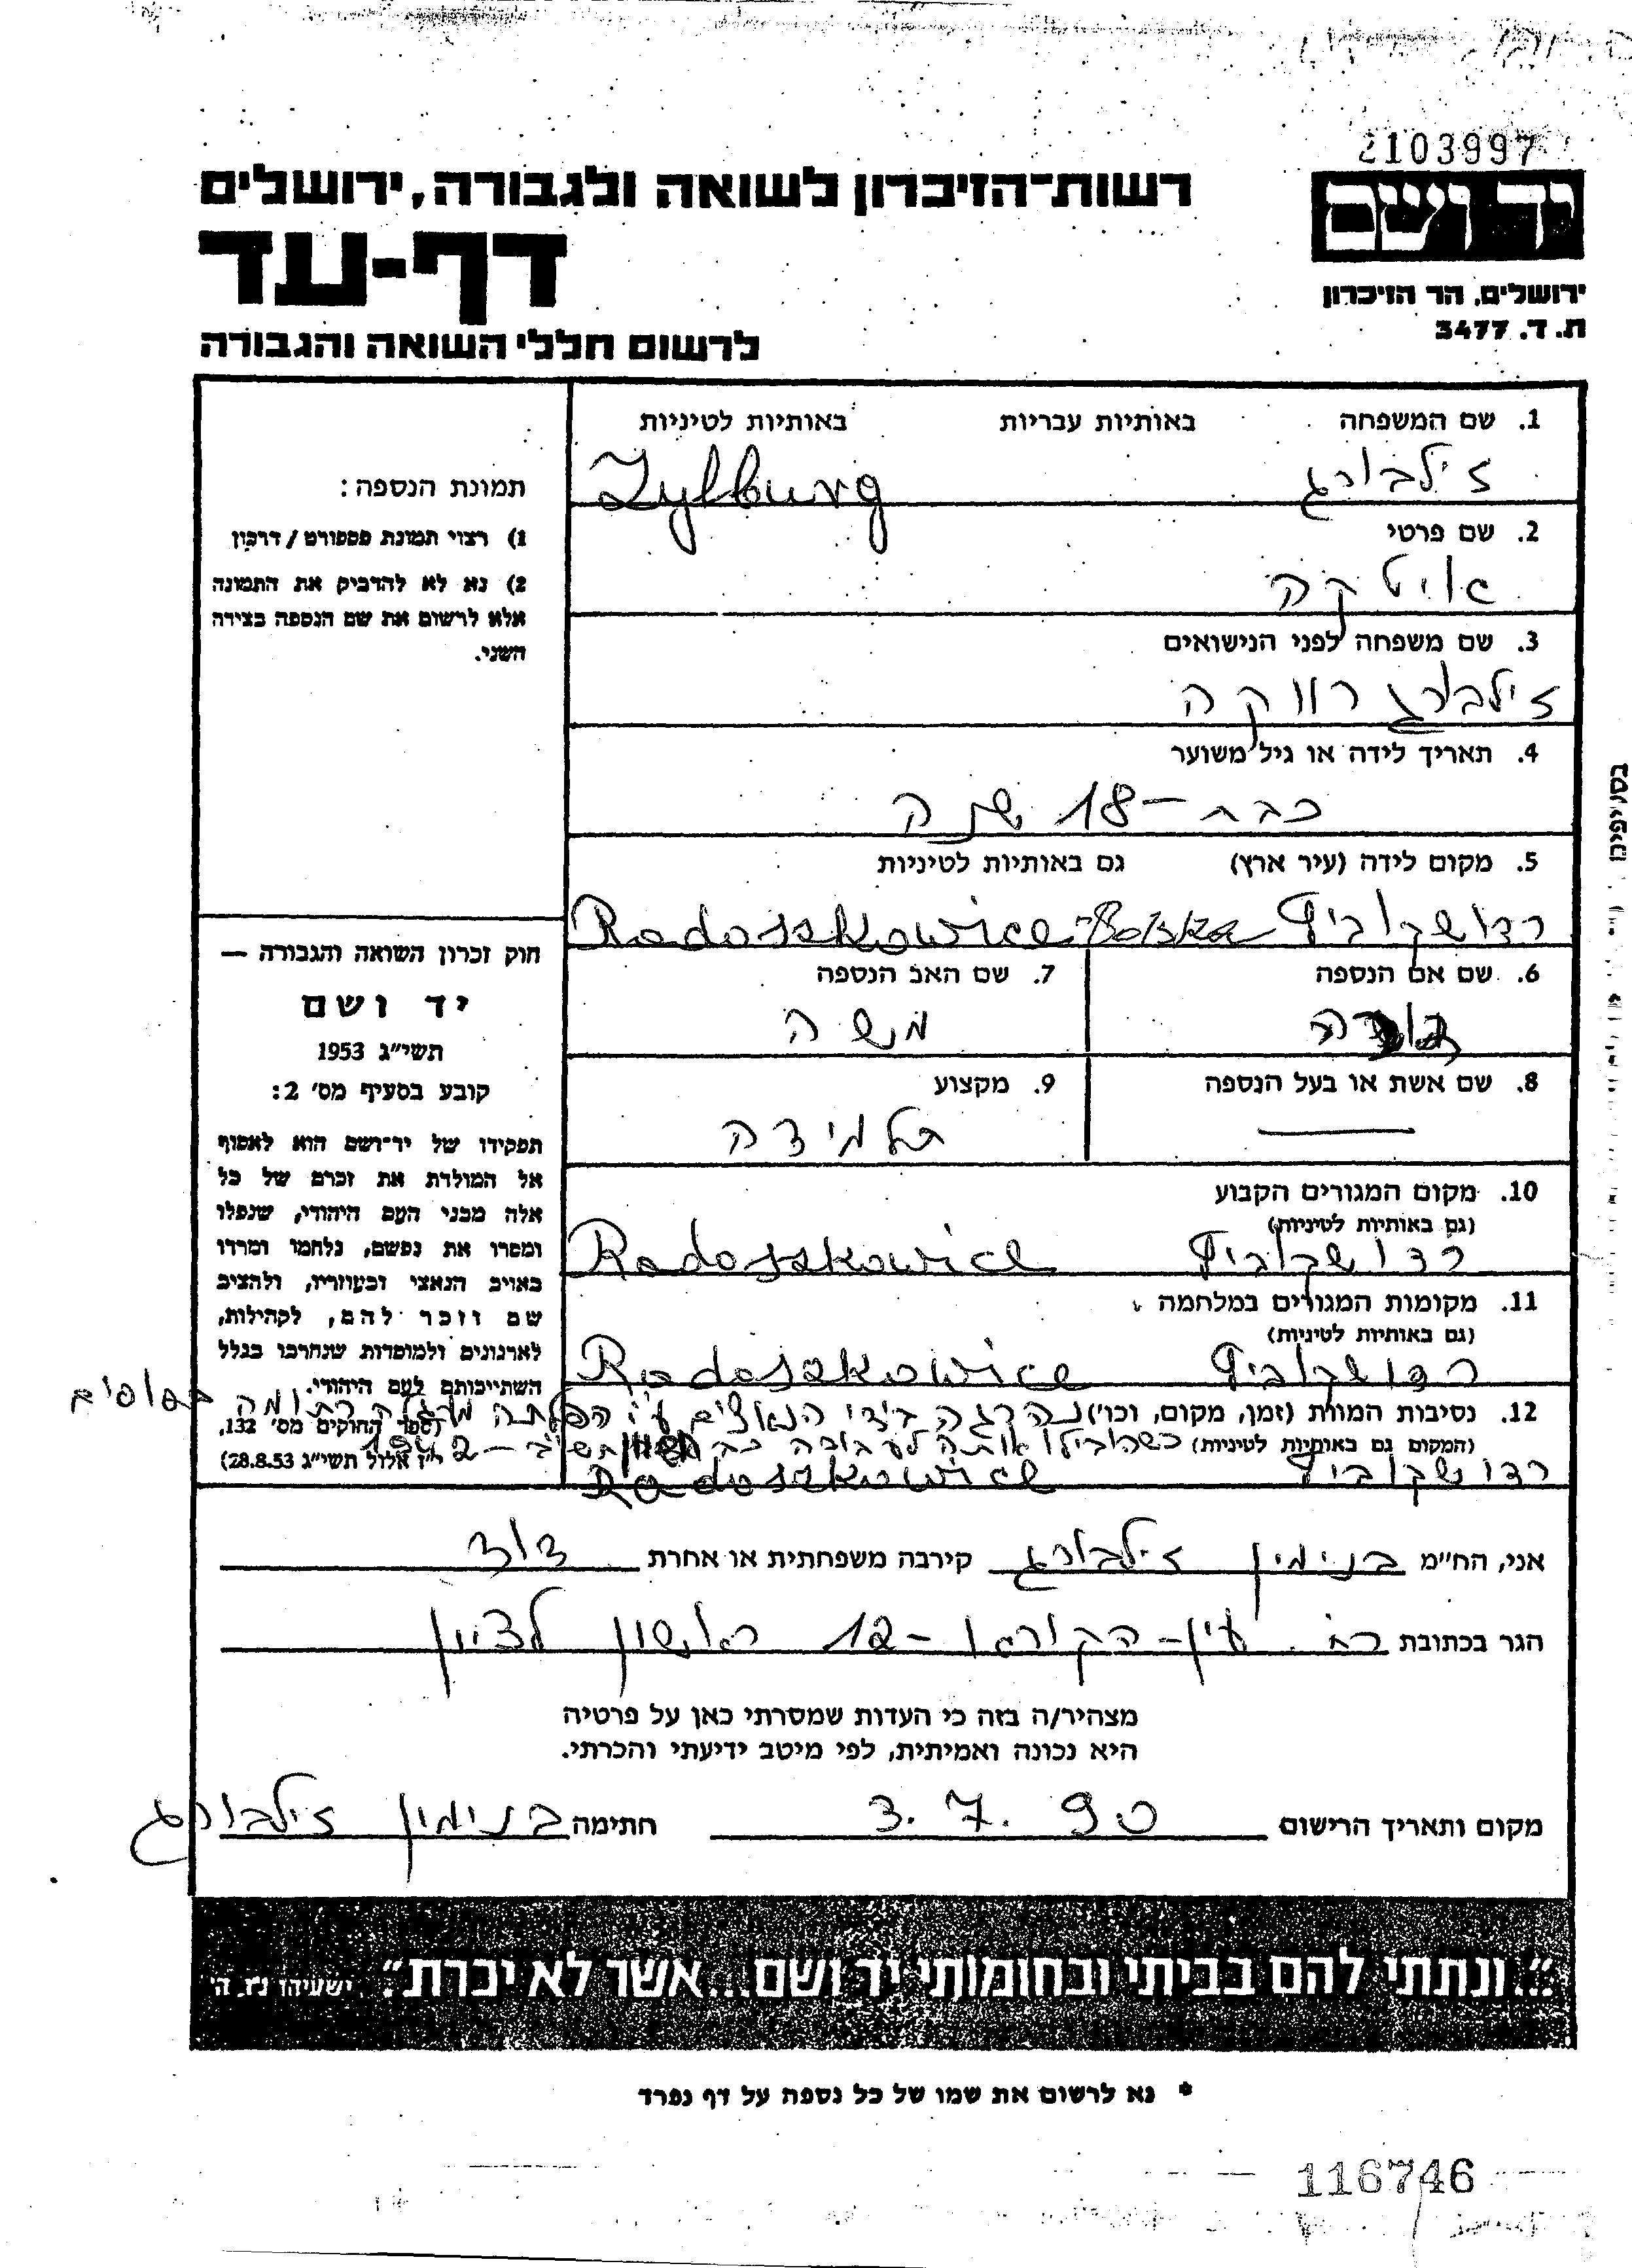 2103997
יד ושם
רשות־הזיכרון לשואה ולגבורה, ירושלים
דף-עד
ירושלים, הר הזיכרון
ת. ד. 3477
לרשום חללי השואה והגבורה
1. שם המשפחה באותיות עבריות באותיות לטיניות
זילבורג Zylburg
2. שם פרטי
איטקה
3. שם משפחה לפני הנישואים
זילבורג רווקה
4. תאריך לידה או גיל משוער
כבת - 18 שנה
5. מקום לידה (עיר ארץ) גם באותיות לטיניות
רדושקוביץ Radoszkowice-Polska
6. שם אם הנספה 7. שם האב הנספה
משה
8. שם אשת או בעל הנספה 9. מקצוע
תלמידה
10. מקום המגורים הקבוע
(גם באותיות לטיניות)
רדושקוביץ Radoszkowice
11. מקומות המגורים במלחמה
(גם באותיות לטיניות)
רדושקוביץ Radoszkowice
12. נסיבות המוות (זמן, מקום, וכו') נהרגה בידי הנאצים ע"י הפלתה מעגלה רתומה בסוסים
(המקום גם באותיות לטיניות) כשהובילו אותה לעבודה כב תש"ב - 1942
רדושקוביץ Radoszkowice
תמונת הנספה:
1) רצוי תמונת פספורט / דרכון
2) נא לא להדביק את התמונה
אלא לרשום את שם הנספה בצידה
השני.
חוק זכרון השואה והגבורה —
יד ושם
תשי"ג 1953
קובע בסעיף מס' 2:
תפקידו של יד-ושם הוא לאסוף
אל המולדת את זכרם של כל
אלה מבני העם היהודי, שנפלו
ומסרו את נפשם, נלחמו ומרדו
באויב הנאצי ובעוזריו, ולהציב
שם וזכר להם, לקהילות,
לארגונים ולמוסדות שנחרבו בגלל
השתייכותם לעם היהודי.
(ספר החוקים מס' 132,
י"ז אלול תשי"ג 28.8.53)
אני, הח"מ בנימין זילבורג קירבה משפחתית או אחרת דוד
הגר בכתובת רח. עין-הקורא - 12 ראשון לציון
מצהיר/ה בזה כי העדות שמסרתי כאן על פרטיה
היא נכונה ואמיתית, לפי מיטב ידיעתי והכרתי.
מקום ותאריך הרישום 3.7.90 חתימה בנימין זילבורג
"...ונתתי להם בביתי ובחומותי יד ושם...אשר לא יכרת". ישעיהו נ"ו, ה'
* נא לרשום את שמו של כל נספה על דף נפרד
116746